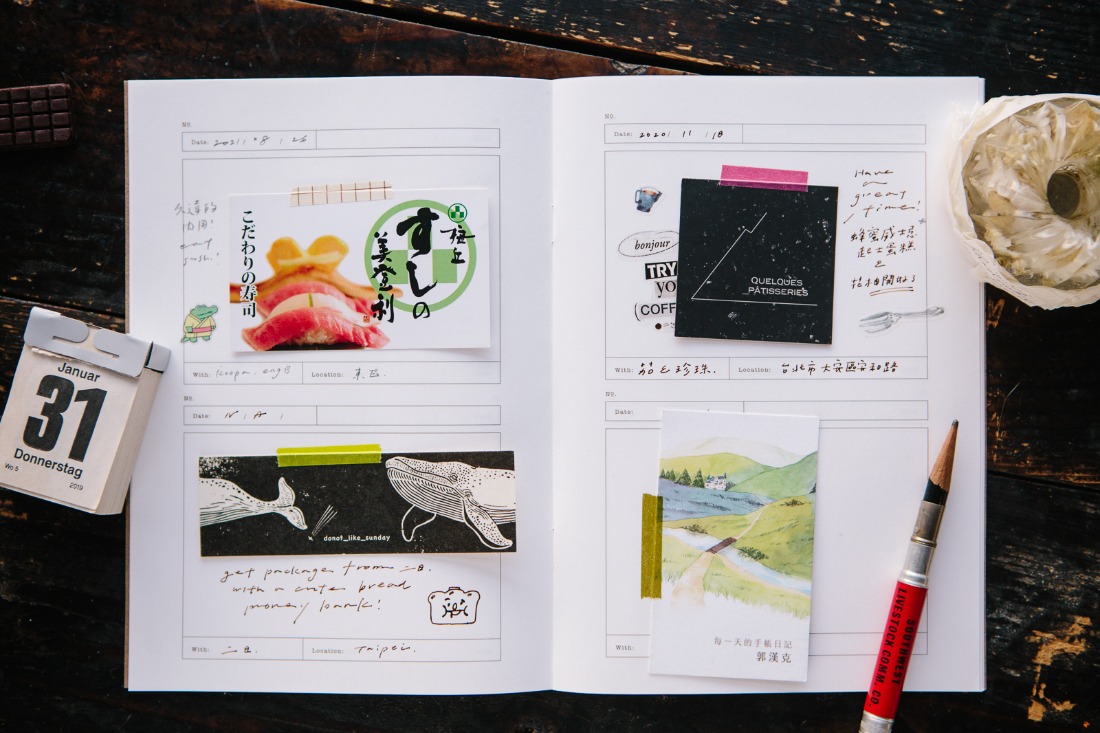 No.
Date: 2021 8 26
久違的
肉肉!
eat
sushi!
こだわりの寿司
極上
すしの
美登利
With:
Location: 東區.
No.
Date: N A
donot_like_sunday
get packages from 二日.
with a cute bread
money bank!
With: 二日.
Location: Taipei.
No.
Date: 2020 11 18
Have
a
great
time!
bonjour
TRY
YO
COFF
QUELQUES
PÂTISSERIES
蜂蜜威士忌
起士蛋糕
&
With: 茄 & 珍珠.
Location: 台北市大安區安和路
No.
Date:
每一天的手帳日記
郭漢克
With:
Januar
31
Donnerstag
Wo 5
2019
SOUTHWEST
LIVESTOCK COMM. CO